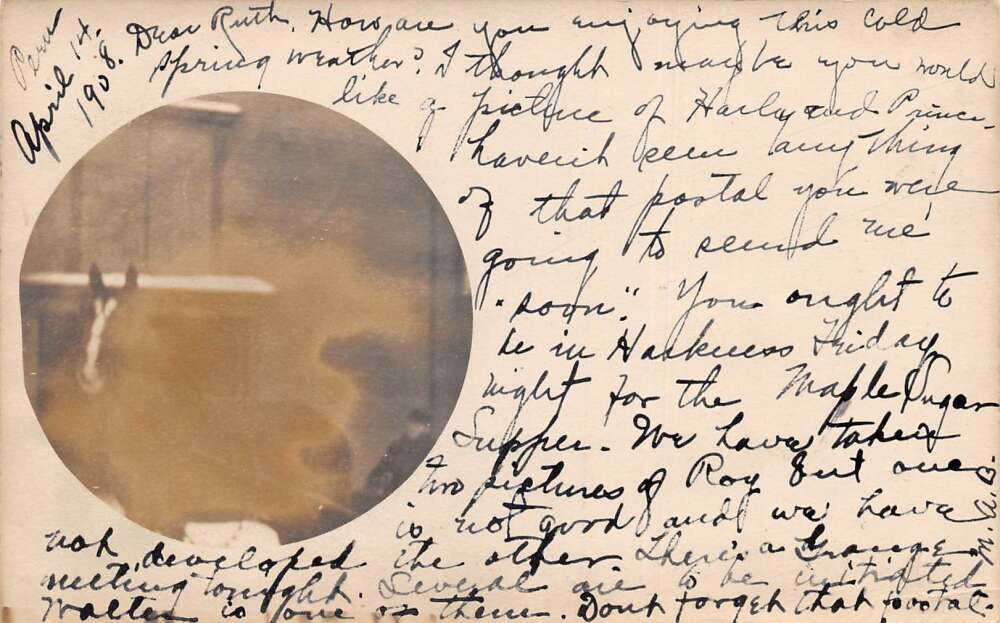 Peru
April 14.
1908.
Dear Ruth. How are you enjoying this cold
spring weather? I thought maybe you would
like a picture of Harly and Prince.
haven't seen anything
of that postal you were
going to send me
"soon". You ought to
be in Harkness Friday
night for the Maple Sugar
Supper. We have taken
two pictures of Roy but one
is not good and we have
not developed the other. There's a Grange
meeting tonight. Several are to be initiated
Walter is one of them. Dont forget that postal.
M.A.B.